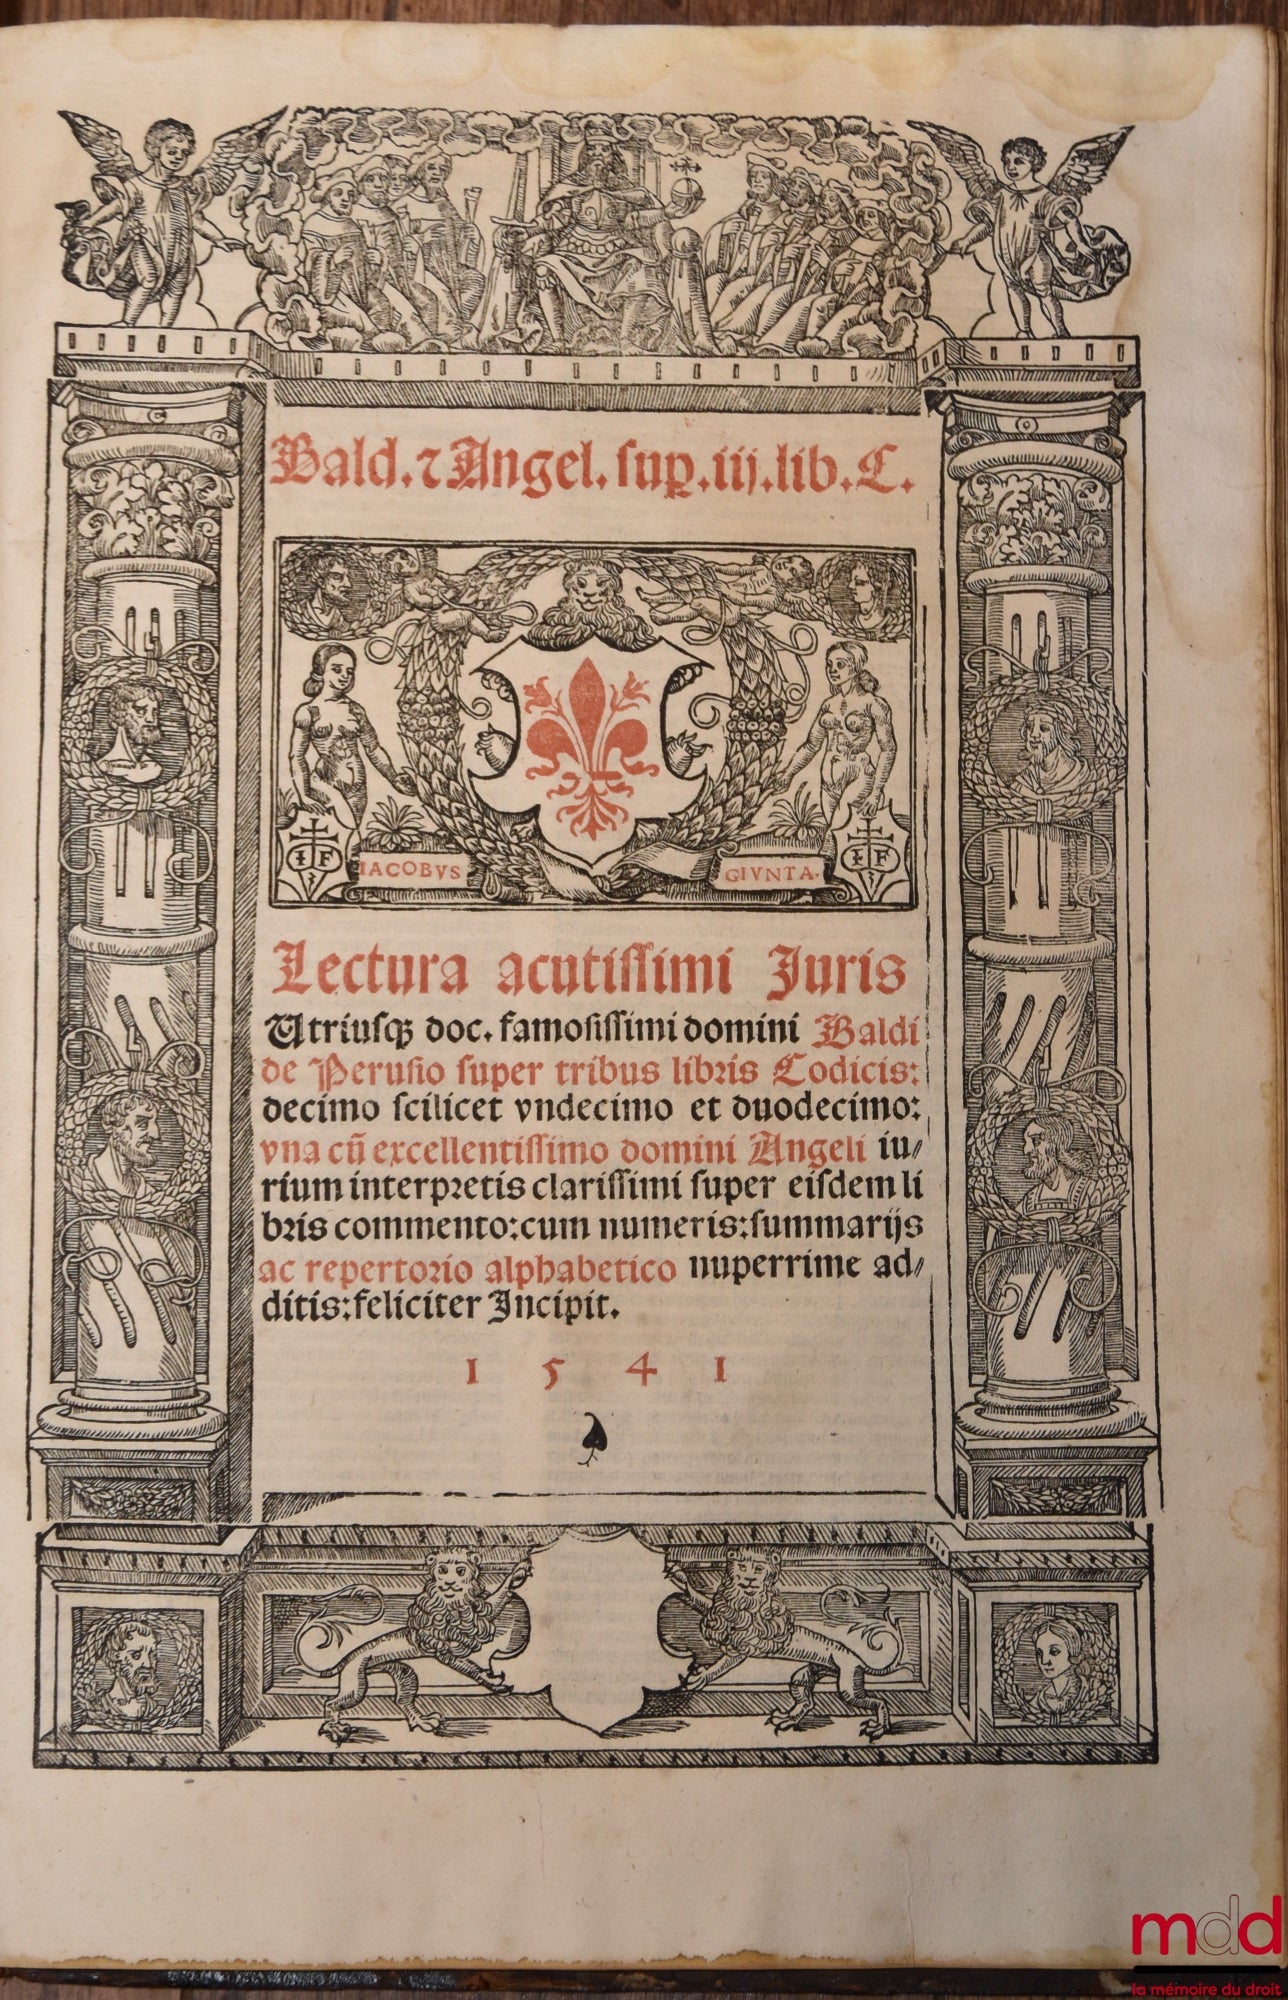 Bald. ⁊ Angel. sup. iij. lib. C.
I F
IACOBVS
GIVNTA.
I F
Lectura acutissimi Juris
Utriusqꝫ doc. famosissimi domini Baldi
de Perusio super tribus libris Codicis:
decimo scilicet vndecimo et duodecimo:
vna cū excellentissimo domini Angeli iu⸗
rium interpretis clarissimi super eisdem li
bris commento: cum numeris: summarijs
ac repertorio alphabetico nuperrime ad⸗
ditis: feliciter Incipit.
1 5 4 1
mdd
la mémoire du droit